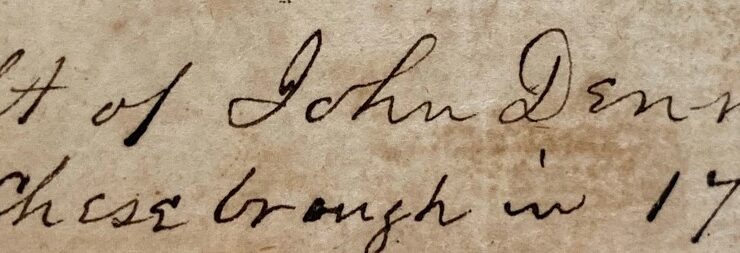 of John Denn
Chesebrough in 17